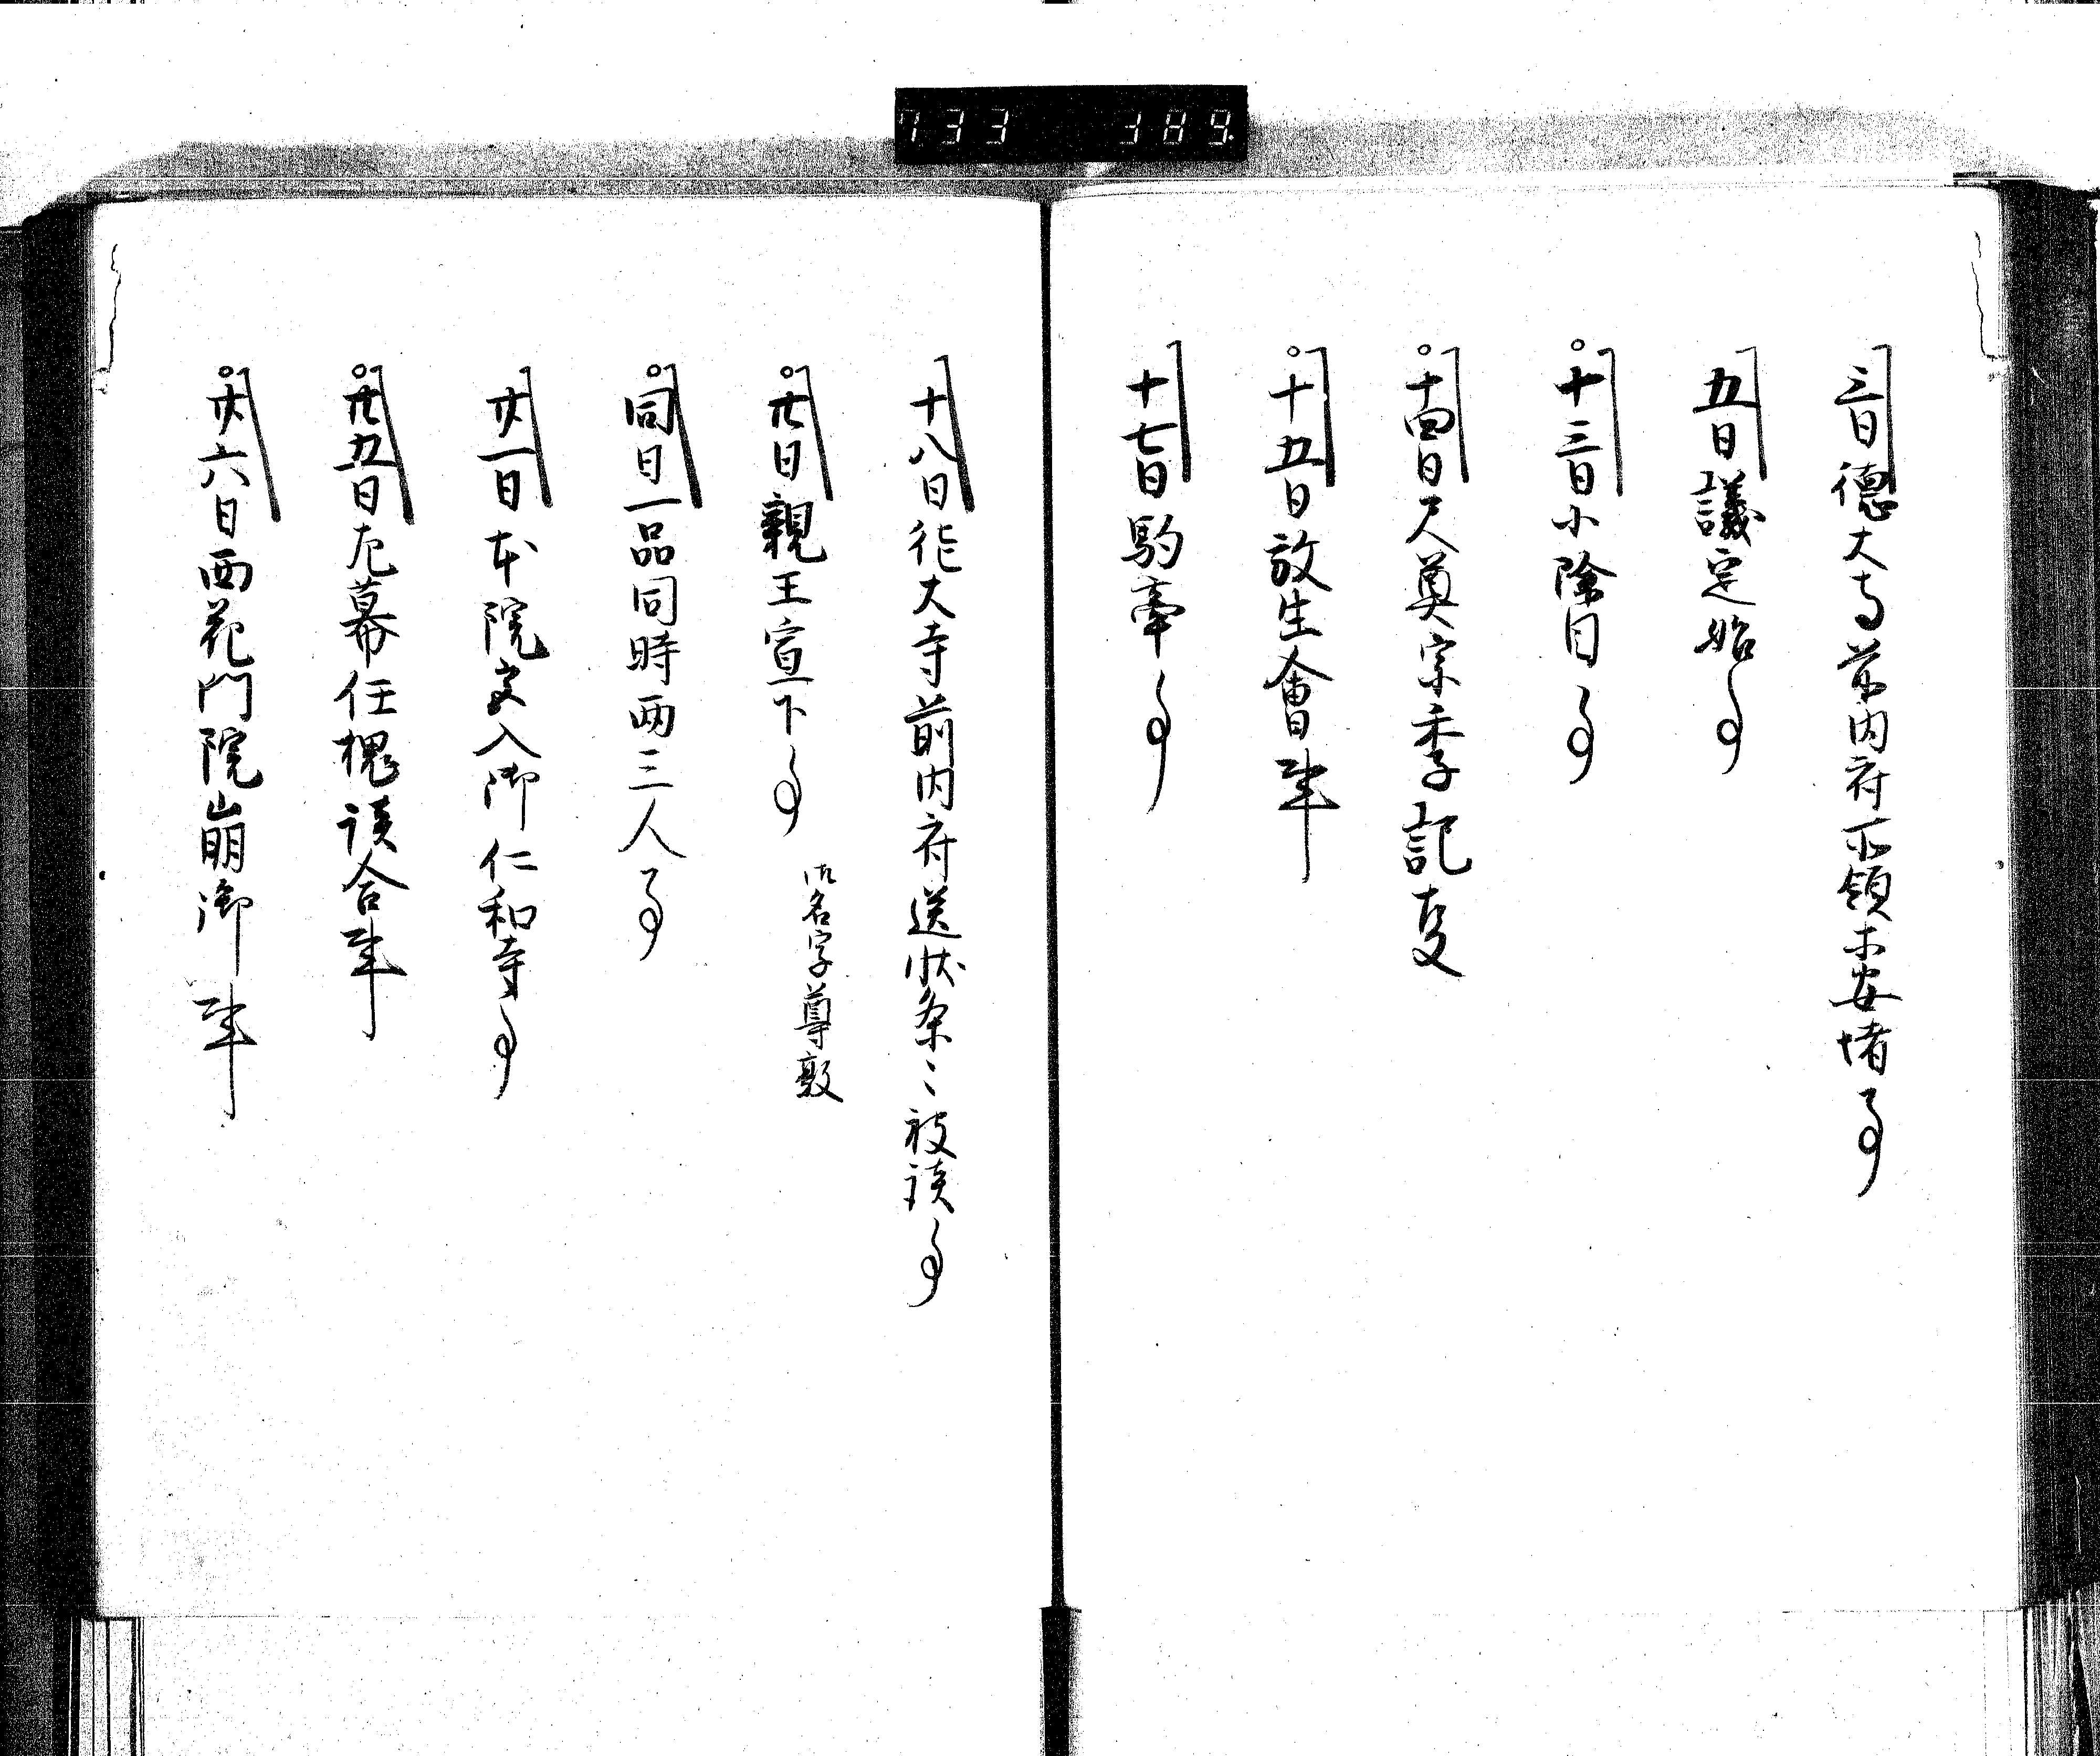 733 389
三日徳大寺前内府所領等安堵事
五日議定始事
十三日小除目事
十四日尺奠宗季記事
十五日放生會事
十七日駒牽事
十八日徳大寺前内府送状条々被談事
廿日親王宣下事
御名字尊敦
同日一品同時両三人事
廿一日本院又入御仁和寺事
廿五日左幕任槐談合事
廿六日西花門院崩御事